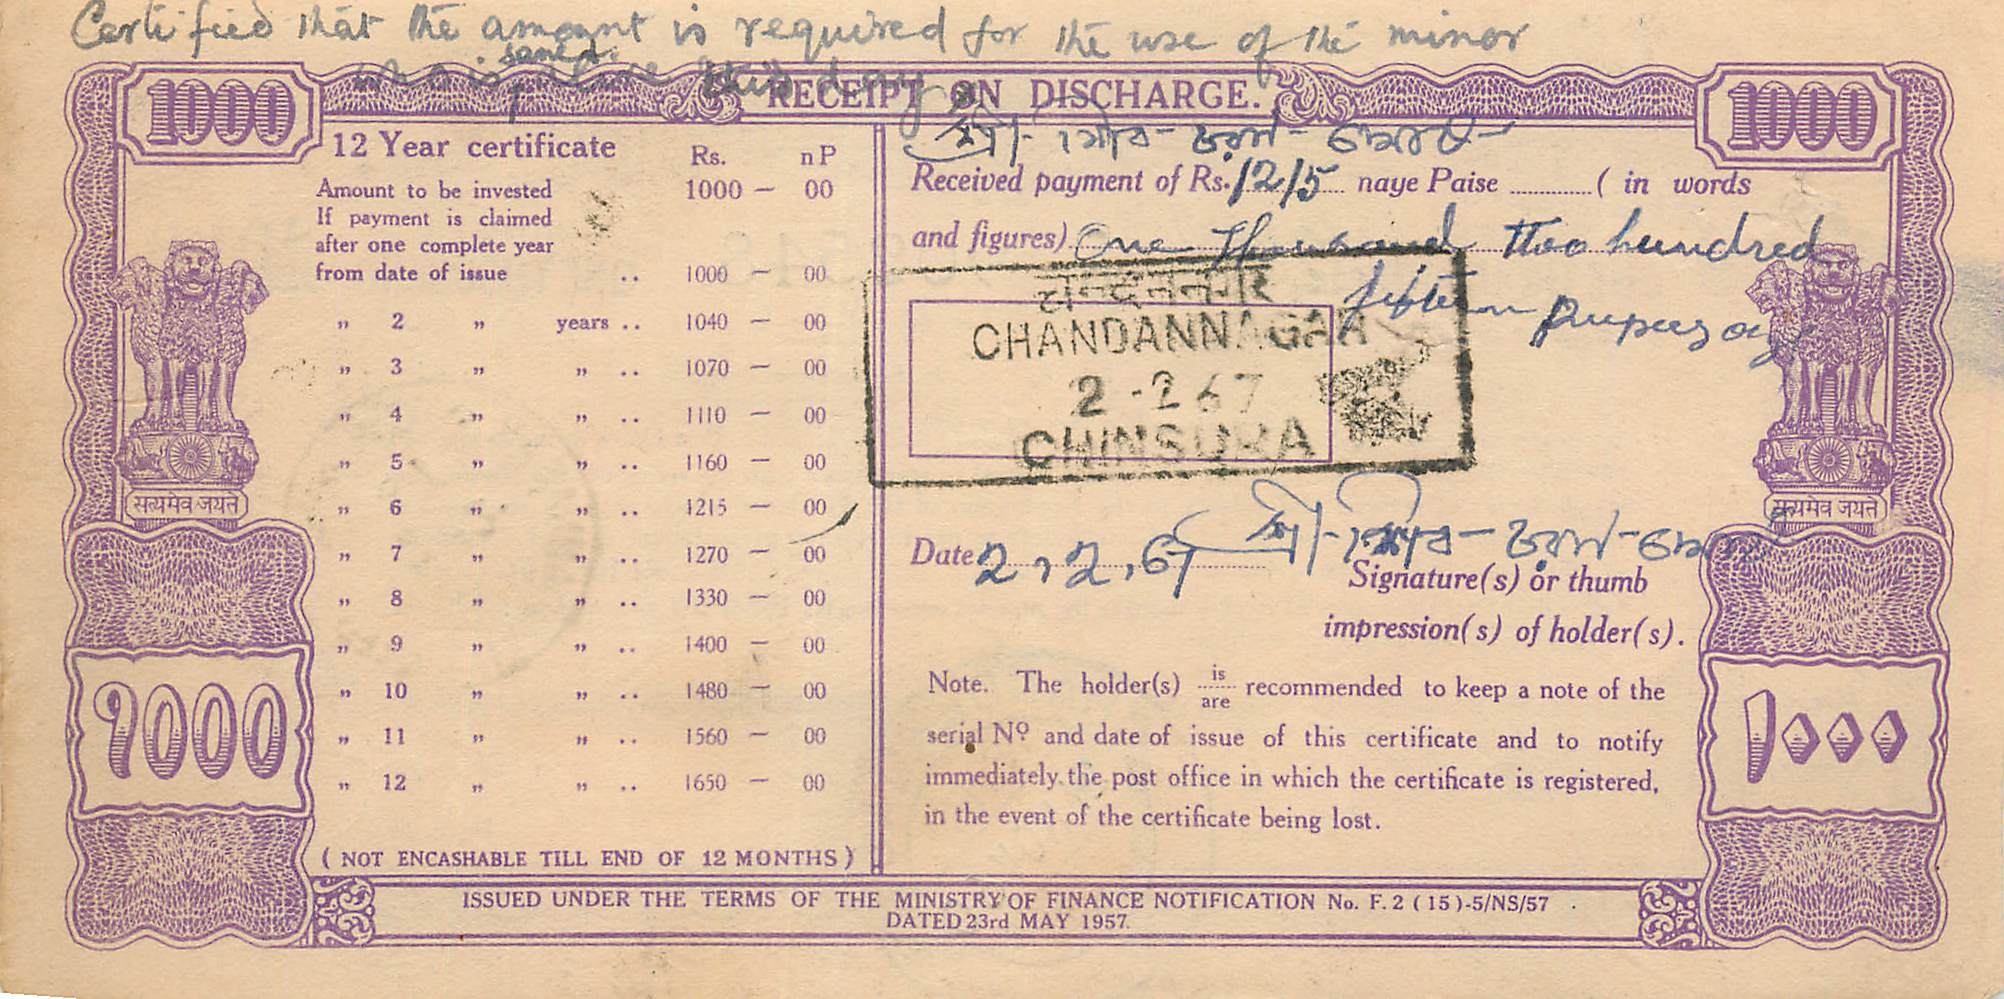 Certified that the amount is required for the use of the minor
who is
this day
1000
RECEIPT ON DISCHARGE.
1000
12 Year certificate
Rs. nP
Amount to be invested 1000 — 00
If payment is claimed
after one complete year
from date of issue .. 1000 — 00
„ 2 „ years .. 1040 — 00
„ 3 „ „ .. 1070 — 00
„ 4 „ „ .. 1110 — 00
„ 5 „ „ .. 1160 — 00
„ 6 „ „ .. 1215 — 00
„ 7 „ „ .. 1270 — 00
„ 8 „ „ .. 1330 — 00
„ 9 „ „ .. 1400 — 00
„ 10 „ „ .. 1480 — 00
„ 11 „ „ .. 1560 — 00
„ 12 „ „ .. 1650 — 00
( NOT ENCASHABLE TILL END OF 12 MONTHS )
सत्यमेव जयते
१०००
শ্রী-শিব-চরণ-
Received payment of Rs. 1215 naye Paise ............( in words
and figures) One Thousand two hundred
fifteen Rupees
चन्दननगर
CHANDANNAGAR
2 - 2 67
CHINSURA
Date 2, 2, 67 শ্রী-শিব-চরণ-
Signature(s) or thumb
impression(s) of holder(s).
Note. The holder(s) is/are recommended to keep a note of the
serial Nº and date of issue of this certificate and to notify
immediately the post office in which the certificate is registered,
in the event of the certificate being lost.
सत्यमेव जयते
۱۰۰۰
ISSUED UNDER THE TERMS OF THE MINISTRY OF FINANCE NOTIFICATION No. F. 2 ( 15 )-5/NS/57
DATED 23rd MAY 1957.